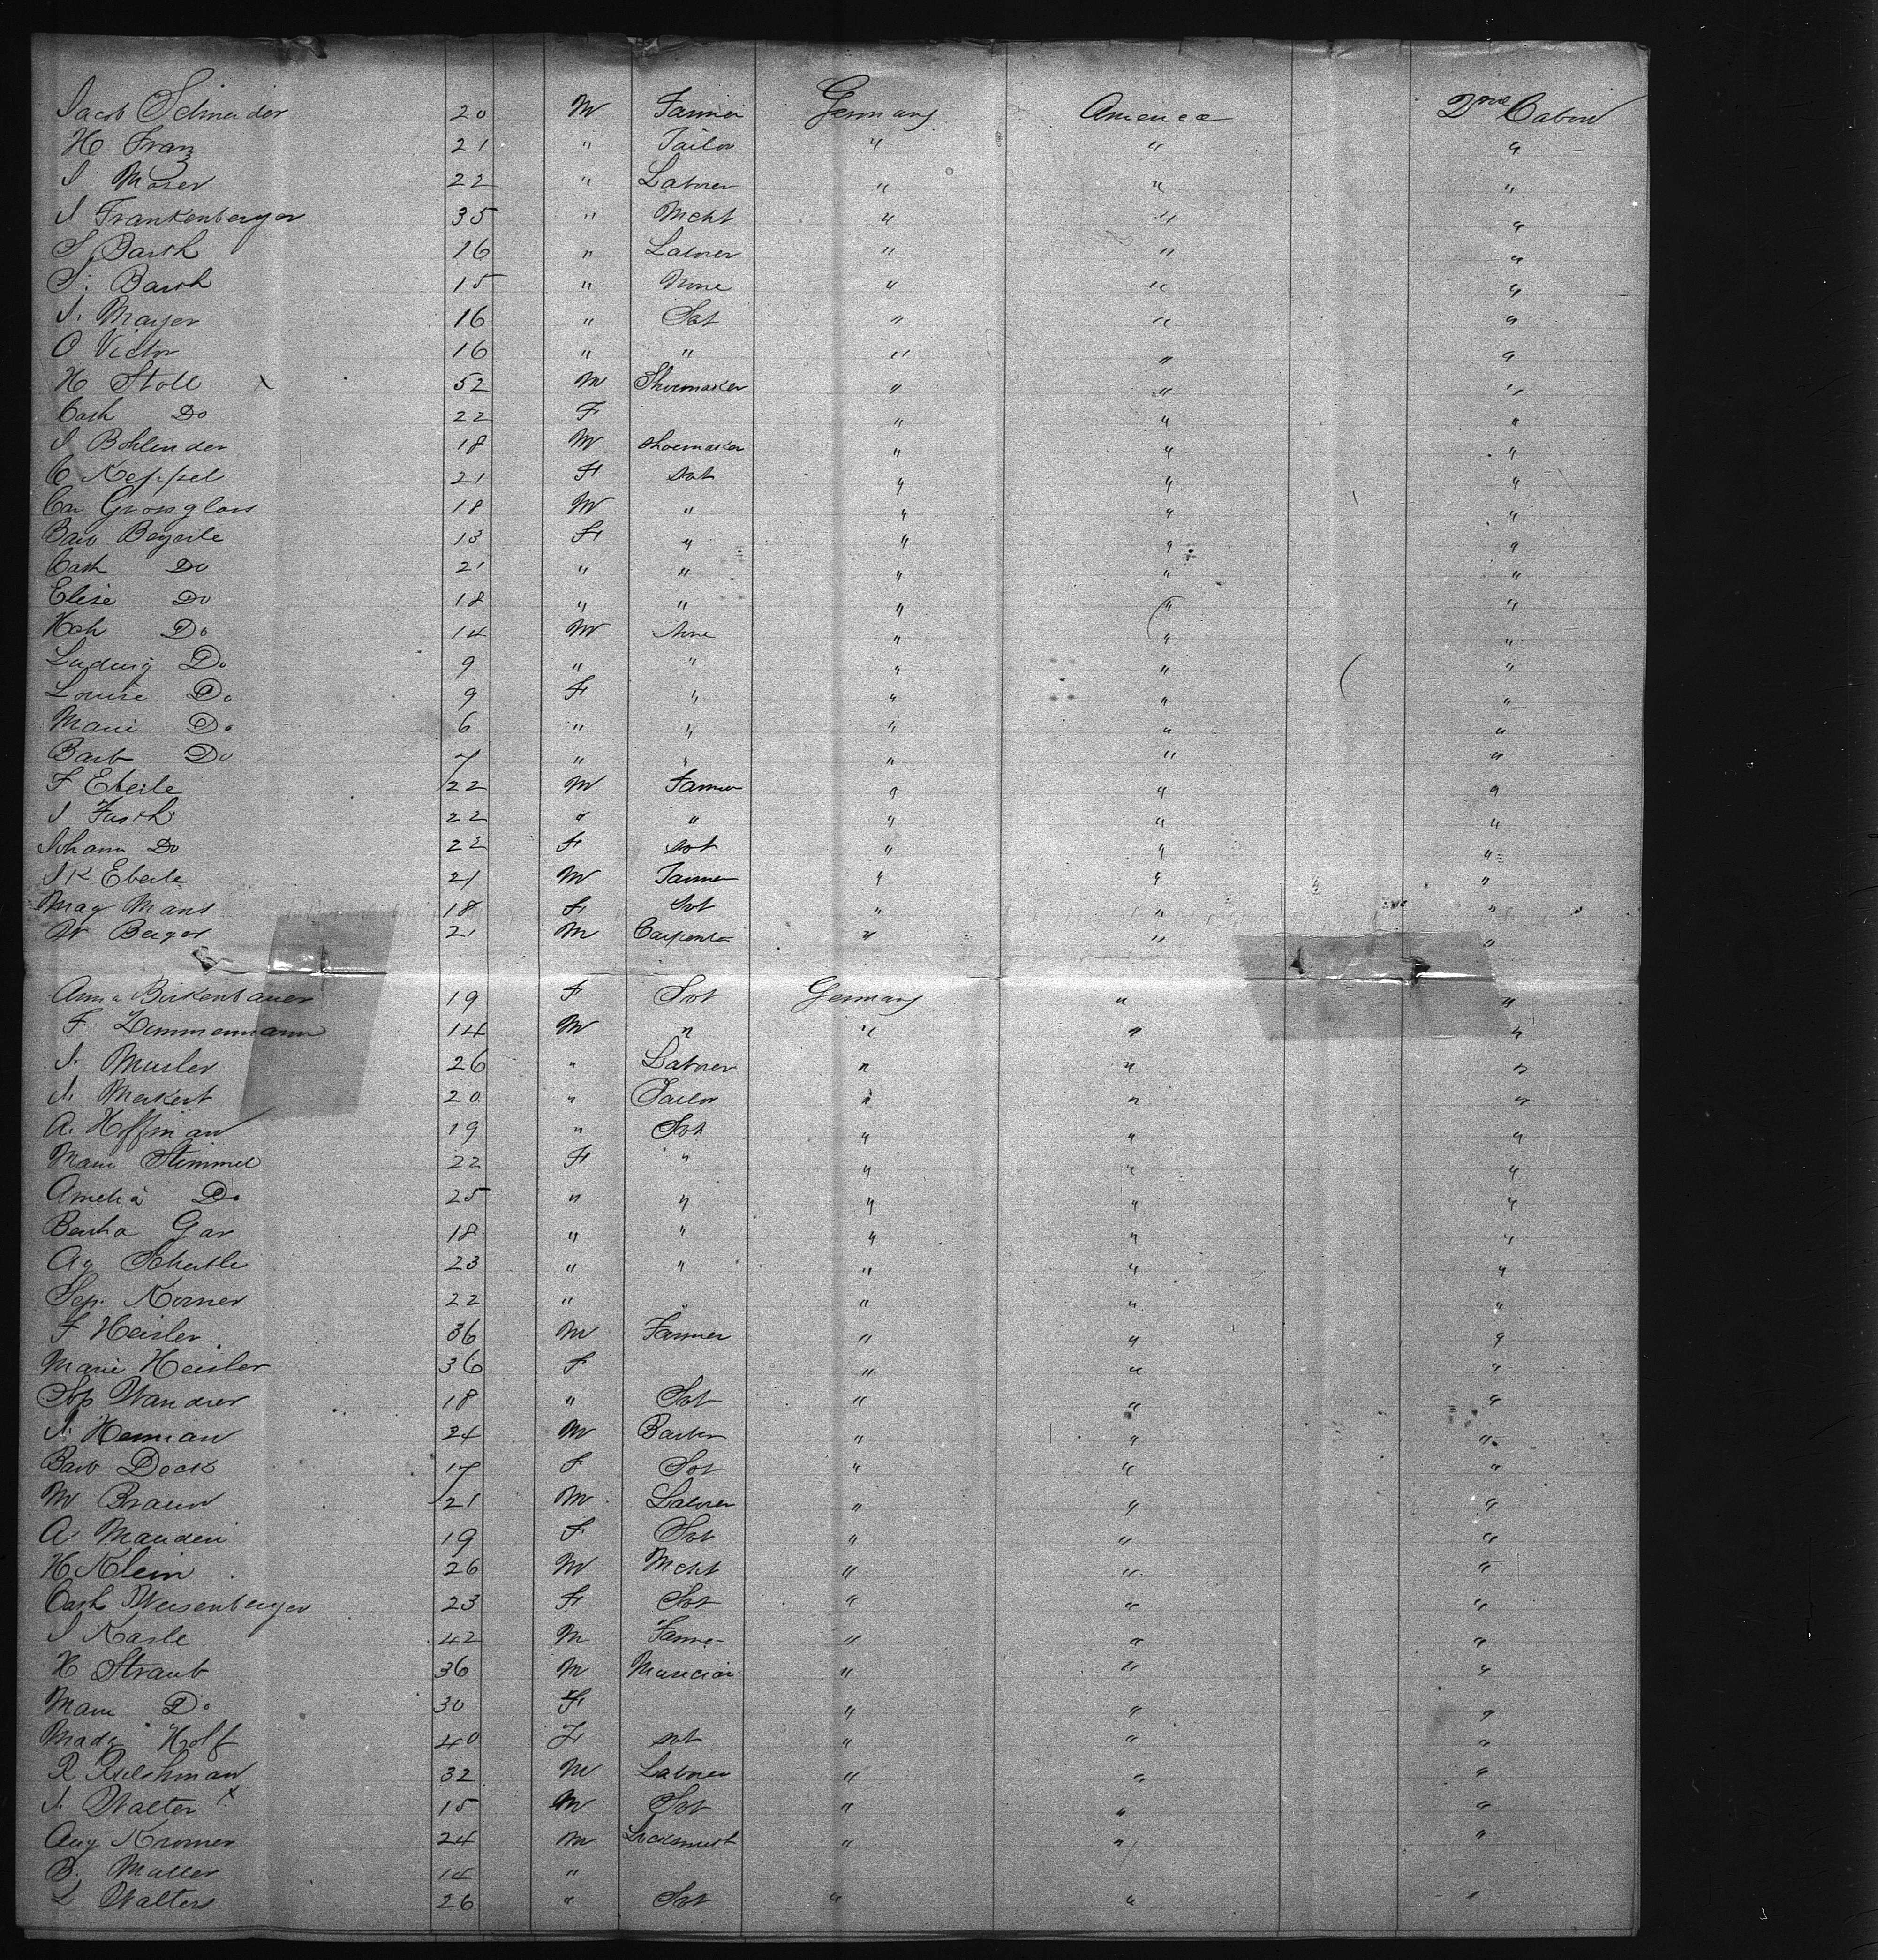 Jacob Schneider 20 M Farmer Germany America 2nd Cabin
H Franz 21 " Tailor " " "
J Moser 22 " Laborer " " "
J Frankenberger 35 " Mcht " " "
S Barth 16 " Laborer " " "
S. Barth 15 " None " " "
J. Mayer 16 " Svt " " "
O Victor 16 " " " " "
H Stoll x 52 M Shoemaker " " "
Cath Do 22 F " " "
J Bohlender 18 M Shoemaker " " "
C Keppel 21 F Svt " " "
Car Grossglass 18 M " " " "
Barb Beyerle 13 F " " " "
Cath Do 21 " " " " "
Elise Do 18 " " " " "
Hch Do 14 M None " " "
Ludwig Do 9 " " " " "
Louise Do 9 F " " " "
Marie Do 6 " " " " "
Barb Do 7 " " " " "
F Eberle 22 M Farmer " " "
J 22 " " " " "
Johann Do 22 F Svt " " "
J K Eberle 21 M Farmer " " "
Mag Mans 18 F Svt " " "
Berger 21 M Carpenter " " "
Anna Birkenbauer 19 F Svt Germany " "
F Zimmermann 14 M " " " "
J. Musler 26 " Laborer " " "
J. Merkert 20 " Tailor " " "
A. Hoffman 19 " Svt " " "
Marie Stimmel 22 F " " " "
Amelia Do 25 " " " " "
Bertha Gar 18 " " " " "
Ag 23 " " " " "
Korner 22 " " " " "
F Heisler 36 M Farmer " " "
Marie Heisler 36 F " " "
Sop Wandrer 18 " Svt " " "
J. Herman 24 M Barber " " "
Barb Dock 17 F Svt " " "
M Braun 21 M Laborer " " "
A 19 F Svt " " "
H Klein 26 M Mcht " " "
Cath Weisenberger 23 F Svt " " "
J Karle 42 M Farmer " " "
H Straub 36 M Musician " " "
Marie Do 30 F " " "
Madg Holf 40 F Svt " " "
R 32 M Laborer " " "
J. Walter x 15 M Svt " " "
Aug Kromer 24 M Locksmith " " "
B. Muller 14 "
L Walters 26 " Svt " " "